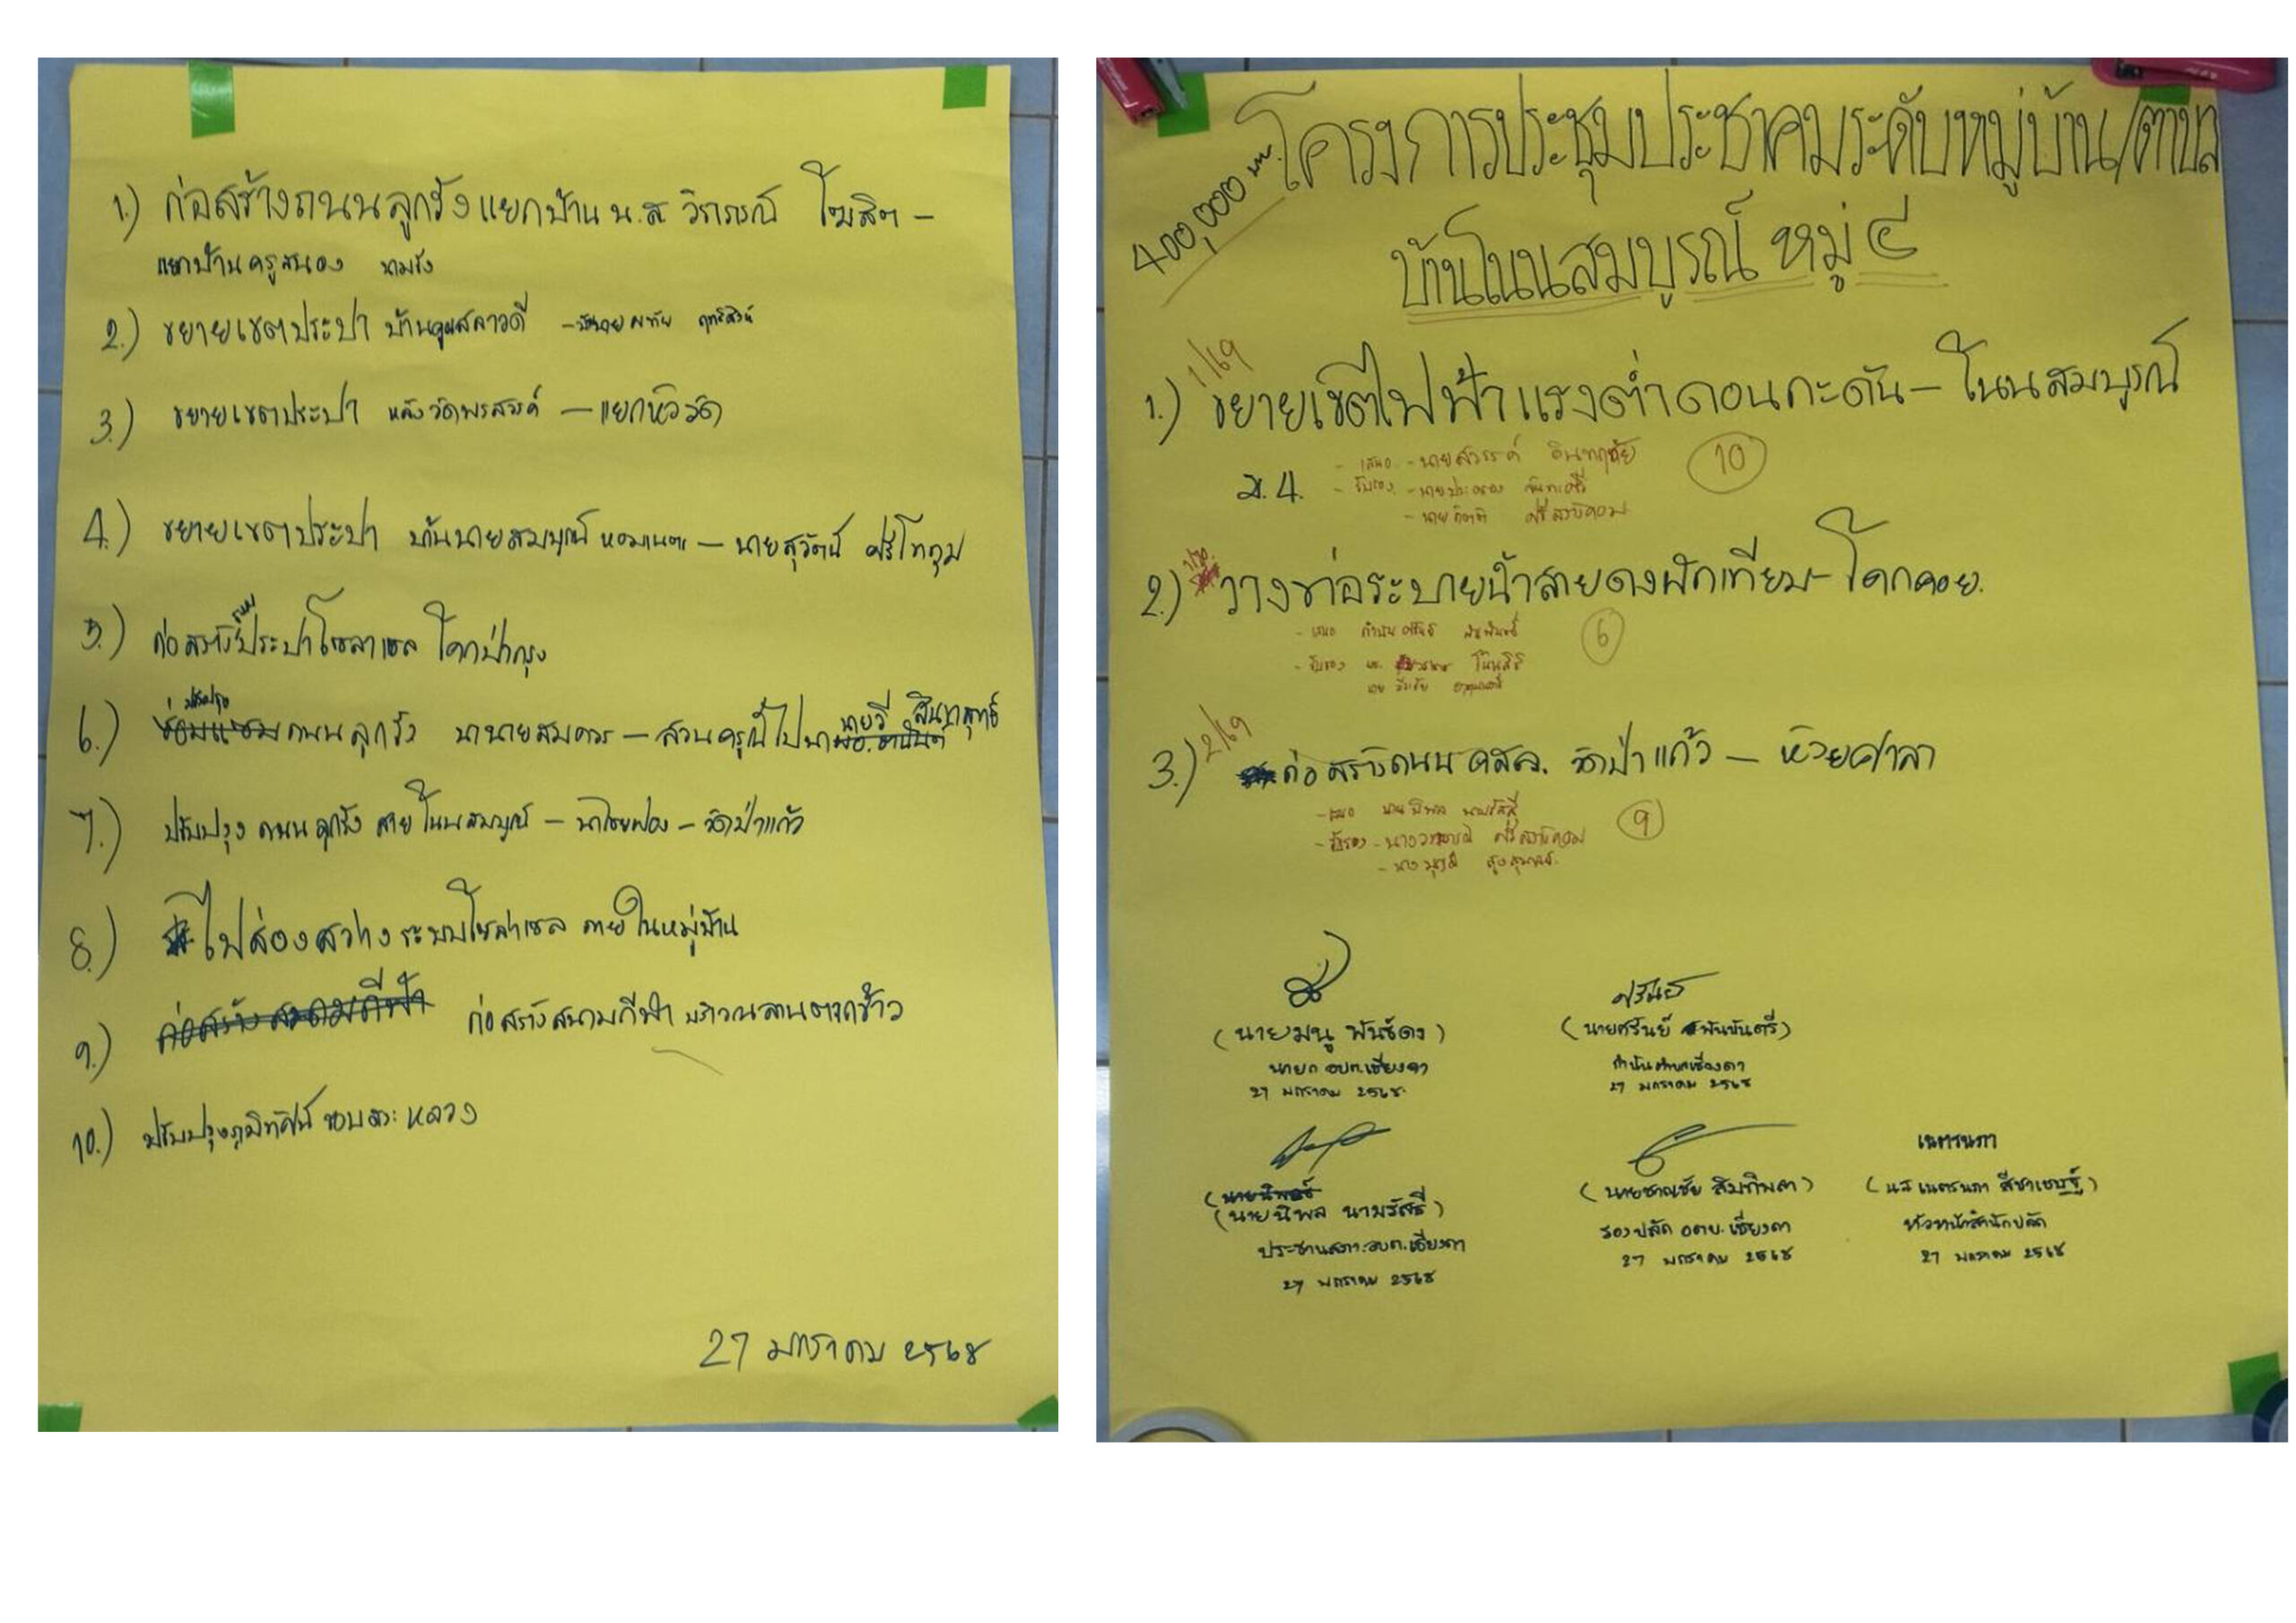 1.) ก่อสร้างถนนลูกรังแยกบ้าน น.ส วิภาภรณ์ โฆสิต -
แยกบ้านครูสนอง นามรัง
2.) ขยายเขตประปา บ้านคุณสลาวดี -
3.) ขยายเขตประปา หลังวัดพรสวรรค์ - แยกหัววัด
4.) ขยายเขตประปา บ้านนายสมบูรณ์ หอมเนตร - นายสุวัฒน์ ศรีโทกุม
5.) ก่อสร้างประปาโซลาเซล โคกป่ากุง
6.) ปรับปรุง ถนนลูกรัง นานายสมควร - สวนครูณีไปนา นายวี สินทฤทธิ์
7.) ปรับปรุง ถนนลูกรัง สายโนนสมบูรณ์ - - วัดป่าแก้ว
8.) ไฟส่องสว่าง ระบบโซล่าเซล ภายในหมู่บ้าน
9.) ก่อสร้างสนามกีฬา ก่อสร้างสนามกีฬา บริเวณลานตากข้าว
10.) ปรับปรุงภูมิทัศน์ ขอบสระหลวง
27 มกราคม 2568
400,000 บาท
โครงการประชุมประชาคมระดับหมู่บ้าน/ตำบล
บ้านโนนสมบูรณ์ หมู่ ๔
1/69
1.) ขยายเขตไฟฟ้าแรงต่ำดอนกะตัน - โนนสมบูรณ์
ม.4.
- เสนอ - นายสวรรค์ อินทฤทัย
10
- รับรอง - นายประครอง จันทะศรี
- นายกิตติ ศรีสารคาม
2.) วางท่อระบายน้ำสายดงผักเทียม - โคกคอย.
- เสนอ กำนันศรัณย์ พันขันตรี
6
- รับรอง
2/69
3.) ก่อสร้างถนน คสล. วัดป่าแก้ว - ห้วยศาลา
- เสนอ นายนิพล นามรัสศรี
9
- รับรอง - นางวรรณี ศรีสารคาม
ศรัณย์
(นายมนู พันธ์ดง)
(นายศรัณย์ พันขันตรี)
นายก อบต.เชียงดา
กำนันตำบลเชียงดา
27 มกราคม 2568
27 มกราคม 2568
เนตรนภา
(นายนิพล นามรัสศรี)
(นายชาญชัย สิมทิพลา)
(น.ส เนตรนภา สีชาเชษฐ)
ประธานสภา อบต.เชียงดา
รองปลัด อบต. เชียงดา
หัวหน้าสำนักปลัด
27 มกราคม 2568
27 มกราคม 2568
27 มกราคม 2568